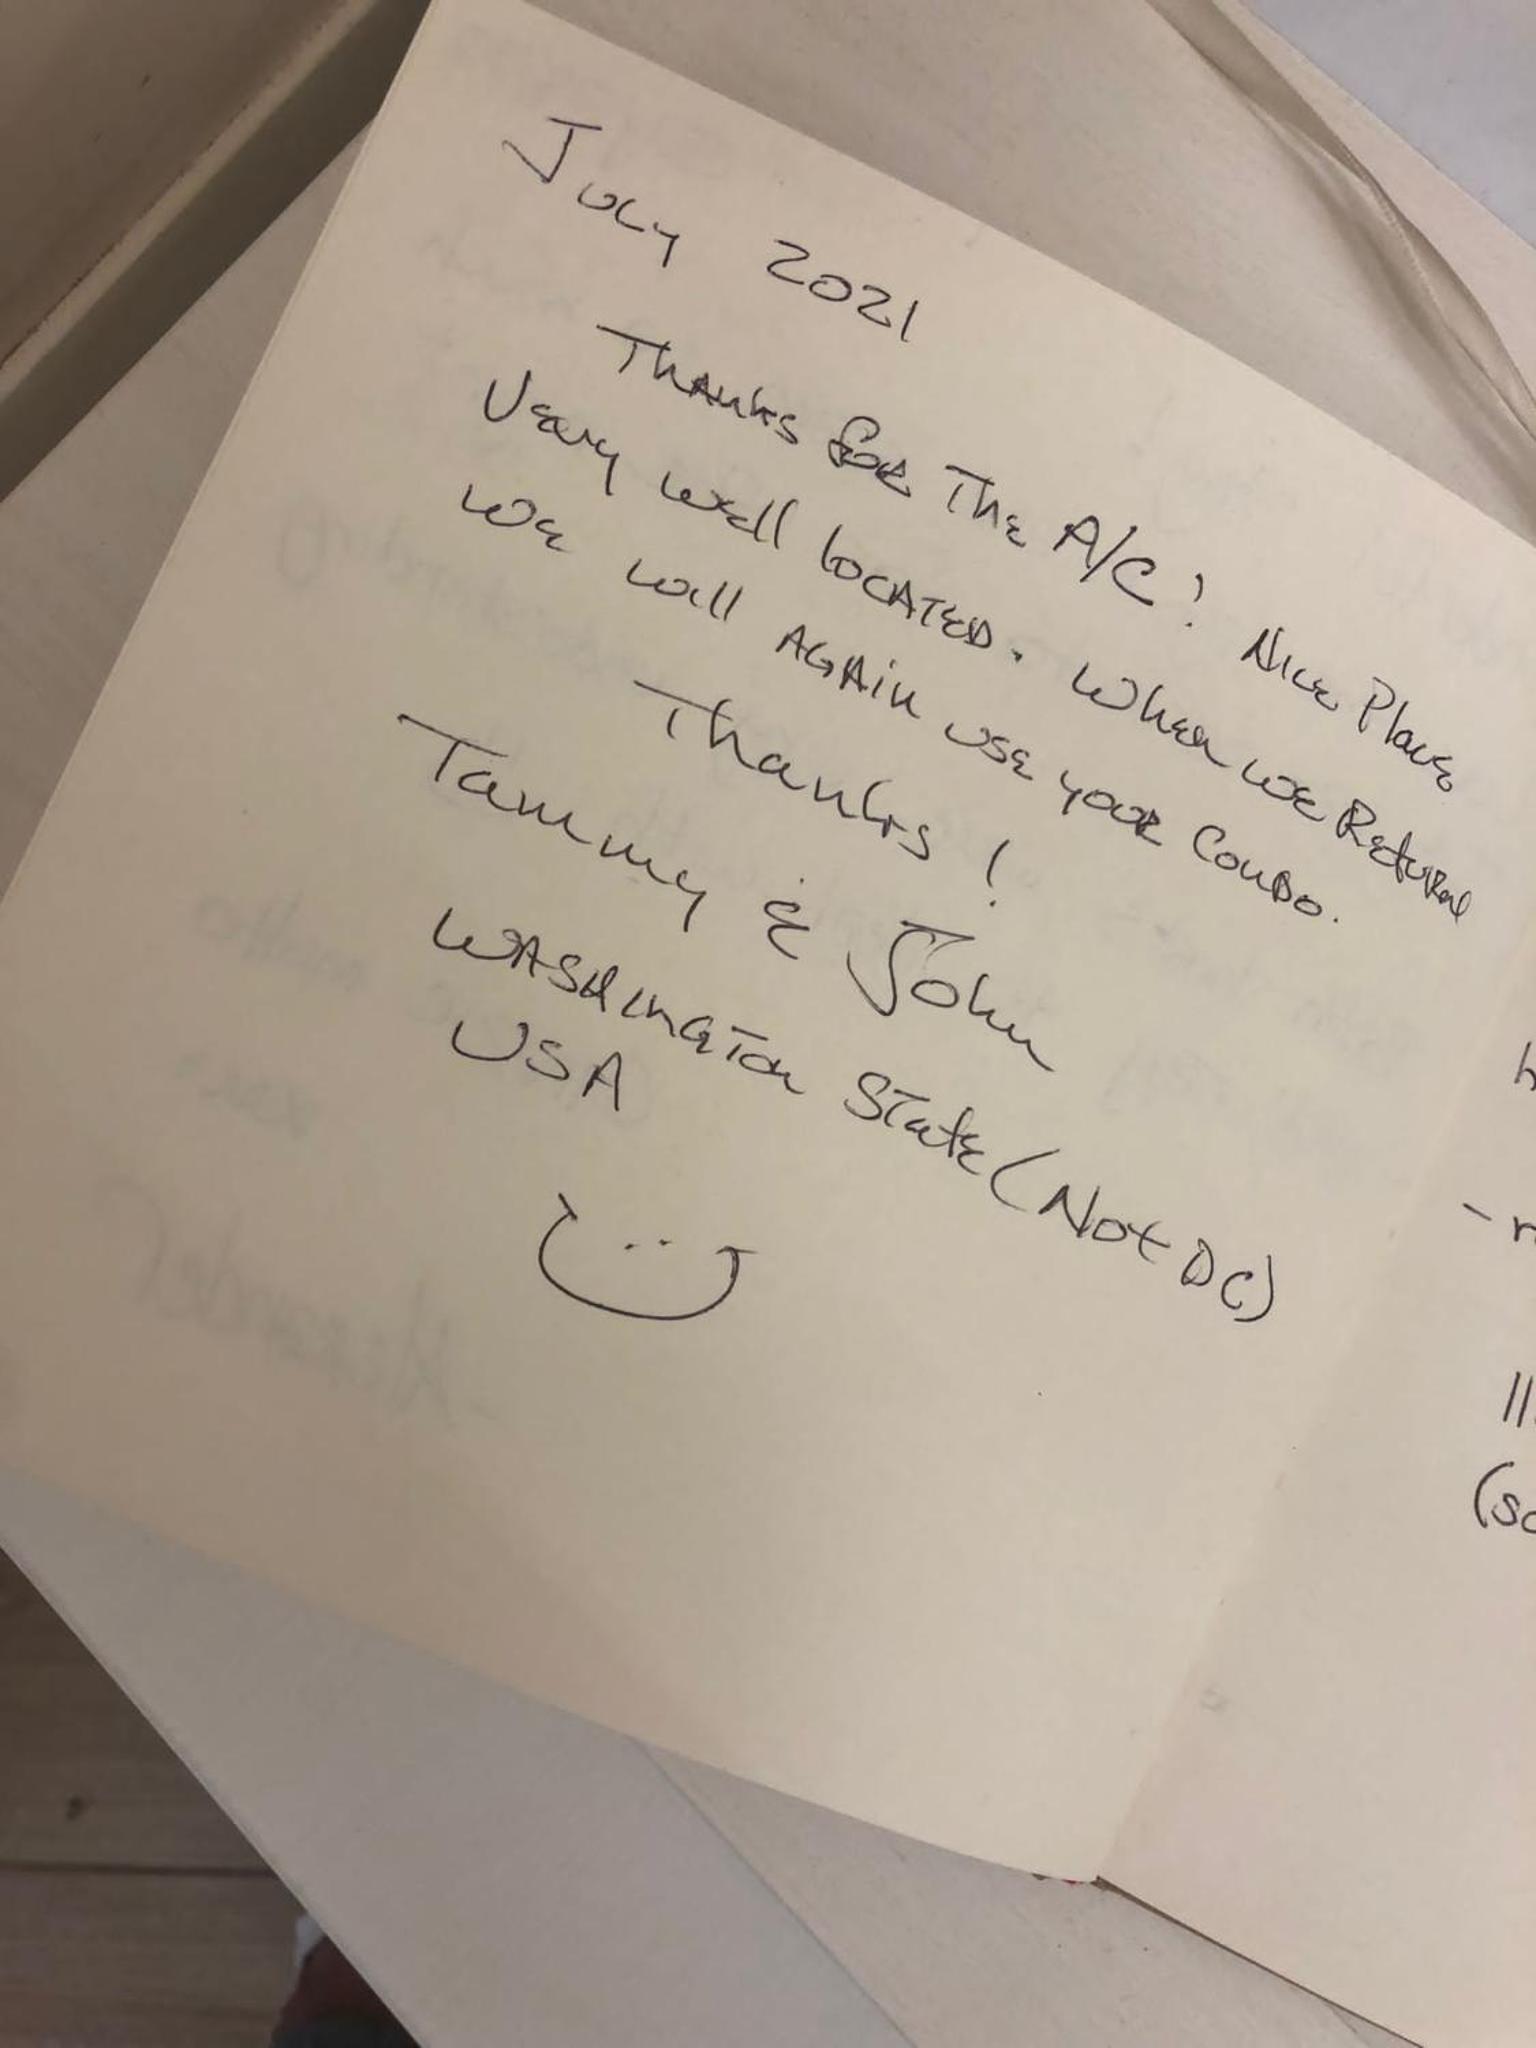 July 2021
Thanks for The A/C! Nice Place
Very well located. When we Return
we will AGAin use your Condo.
Thanks!
Tammy & John
WASHington State (Not DC)
USA
(so